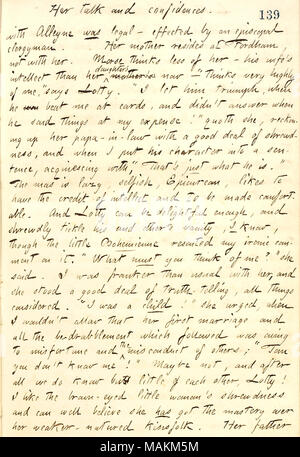 Her talk and confidences.
139
with Alleyne was legal - effected by an episcopal
clergyman. Her mother resided at Fordham
not with her. Morse thinks less of her - his wife's
intellect than her daughter's now - "Thinks very highly
of me," says Lotty. "I let him triumph, when
he beat me at cards, and didn't answer when
he said things at my expense!" quoth she, reckon-
ing up her papa-in-law with a good deal of shrewd-
ness, and when I put his character into a sen-
tence, acquiescing with "That's just what he is."
The man is lazy, selfish, Epicurean likes to
have the credit of intellect and to be made comfort-
able. And Lotty can be delightful enough, and
shrewdly tickle his and other's vanity, I know,
though the little Bohemienne resented my ironic com-
ment on it. "What must you think of me?" she
said. I was franker than usual with her, and
she stood a good deal of truth telling, all things
considered. "I was a child!" she urged, when
I wouldn't allow that her first marriage and
all the bedrabblement which followed was owing
to misfortune and the misconduct of others; "Tom
you don't know me!" Maybe not, and after
all we do know but little of each other, Lotty!
I like the brown-eyed little woman's shrewdness
and can well believe she has got the mastery over
her weaker-natured kinsfolk. Her father
alamy
Image ID: MAKM5M
www.alamy.com